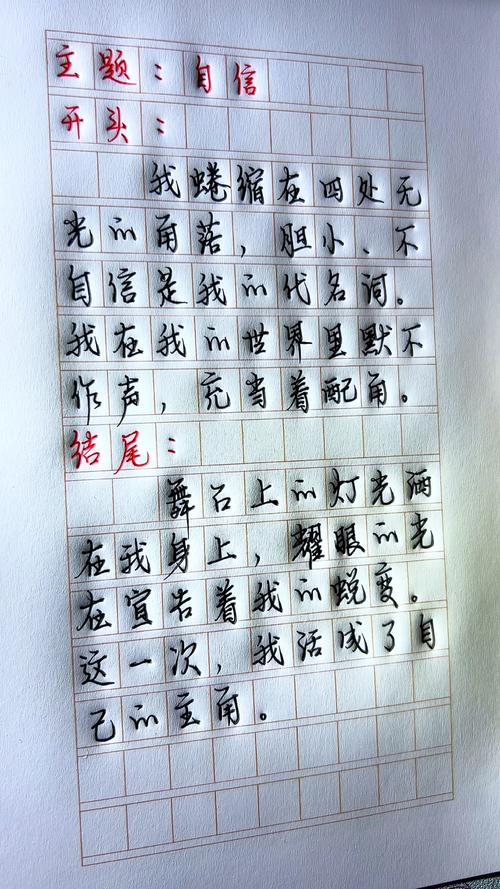 主题：自信
开头：
我蜷缩在四处无
光的角落，胆小、不
自信是我的代名词。
我在我的世界里默不
作声，充当着配角。
结尾：
舞台上的灯光洒
在我身上，耀眼的光
在宣告着我的蜕变。
这一次，我活成了自
己的主角。